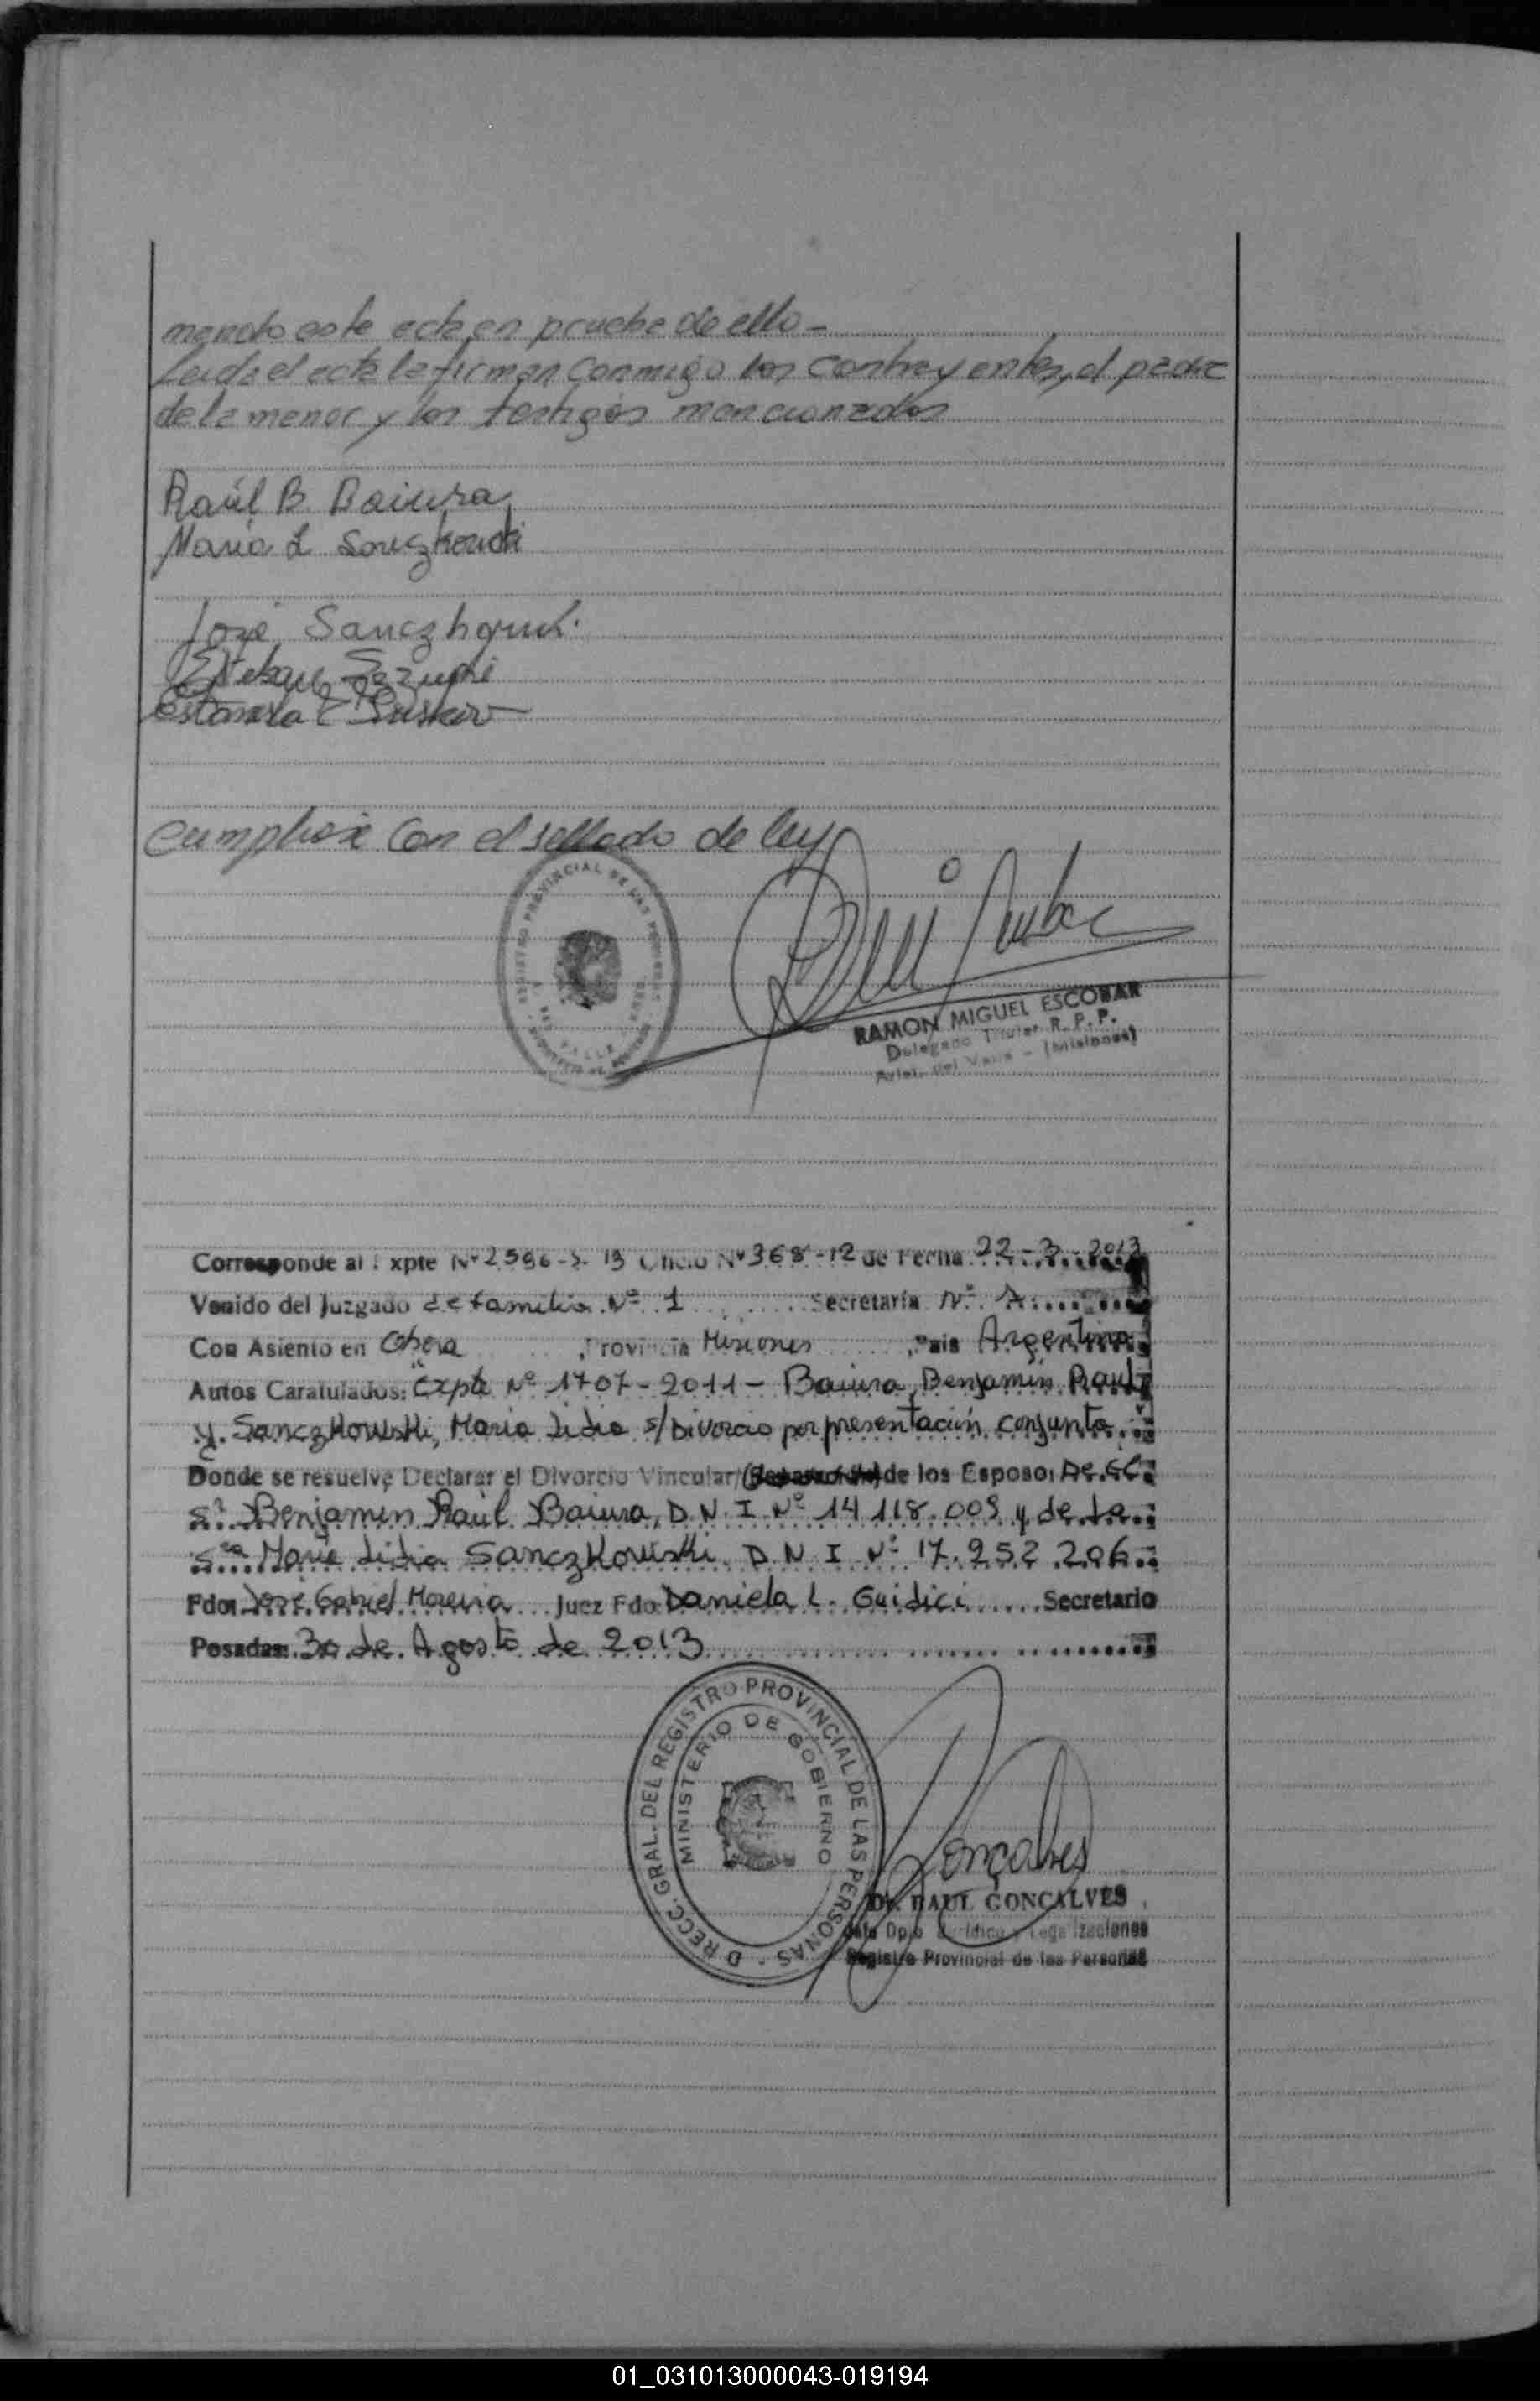 mando este acta en prueba de ello -
Leida el acta la firman conmigo los contrayentes, el padre
de la menor y los testigos mencionados
Raúl B. Baiura
Maria L Sanczkowski
José Sanczkowski
Esteban
Cumplióse con el sellado de ley
REGISTRO PROVINCIAL DE LAS PERSONAS
RAMON MIGUEL ESCOBAR
Delegado Titular R. P. P.
Arist. del Valle - (Misiones)
Corresponde al Expte Nº 2596-S- 13 Oficio Nº 368-12 de Fecha 22-3-2013
Venido del Juzgado de familia Nº 1 Secretaría Nº
Con Asiento en Obera, Provincia Misiones, Pais Argentina
Autos Caratulados: Expte Nº 1707-2011- Baiura, Benjamin Raul
y Sanczkowski, Maria Lidia s/ Divorcio por presentación conjunta
Donde se resuelve Declarar el Divorcio Vincular/ de los Esposos
Sr Benjamin Raúl Baiura, D.N.I Nº 14.118.009 y de la
Sra Maria Lidia Sanczkowski D.N.I Nº 17.252.206
Fdo: José Gabriel Moreira Juez Fdo: Daniela L. Guidici Secretario
Posadas: 30 de Agosto de 2013
DIRECC. GRAL. DEL REGISTRO PROVINCIAL DE LAS PERSONAS -
MINISTERIO DE GOBIERNO
Gonçalves
Dr. RAUL GONCALVES
Jefe Dpto Jurídico y Legalizaciones
Registro Provincial de las Personas
01_031013000043-019194